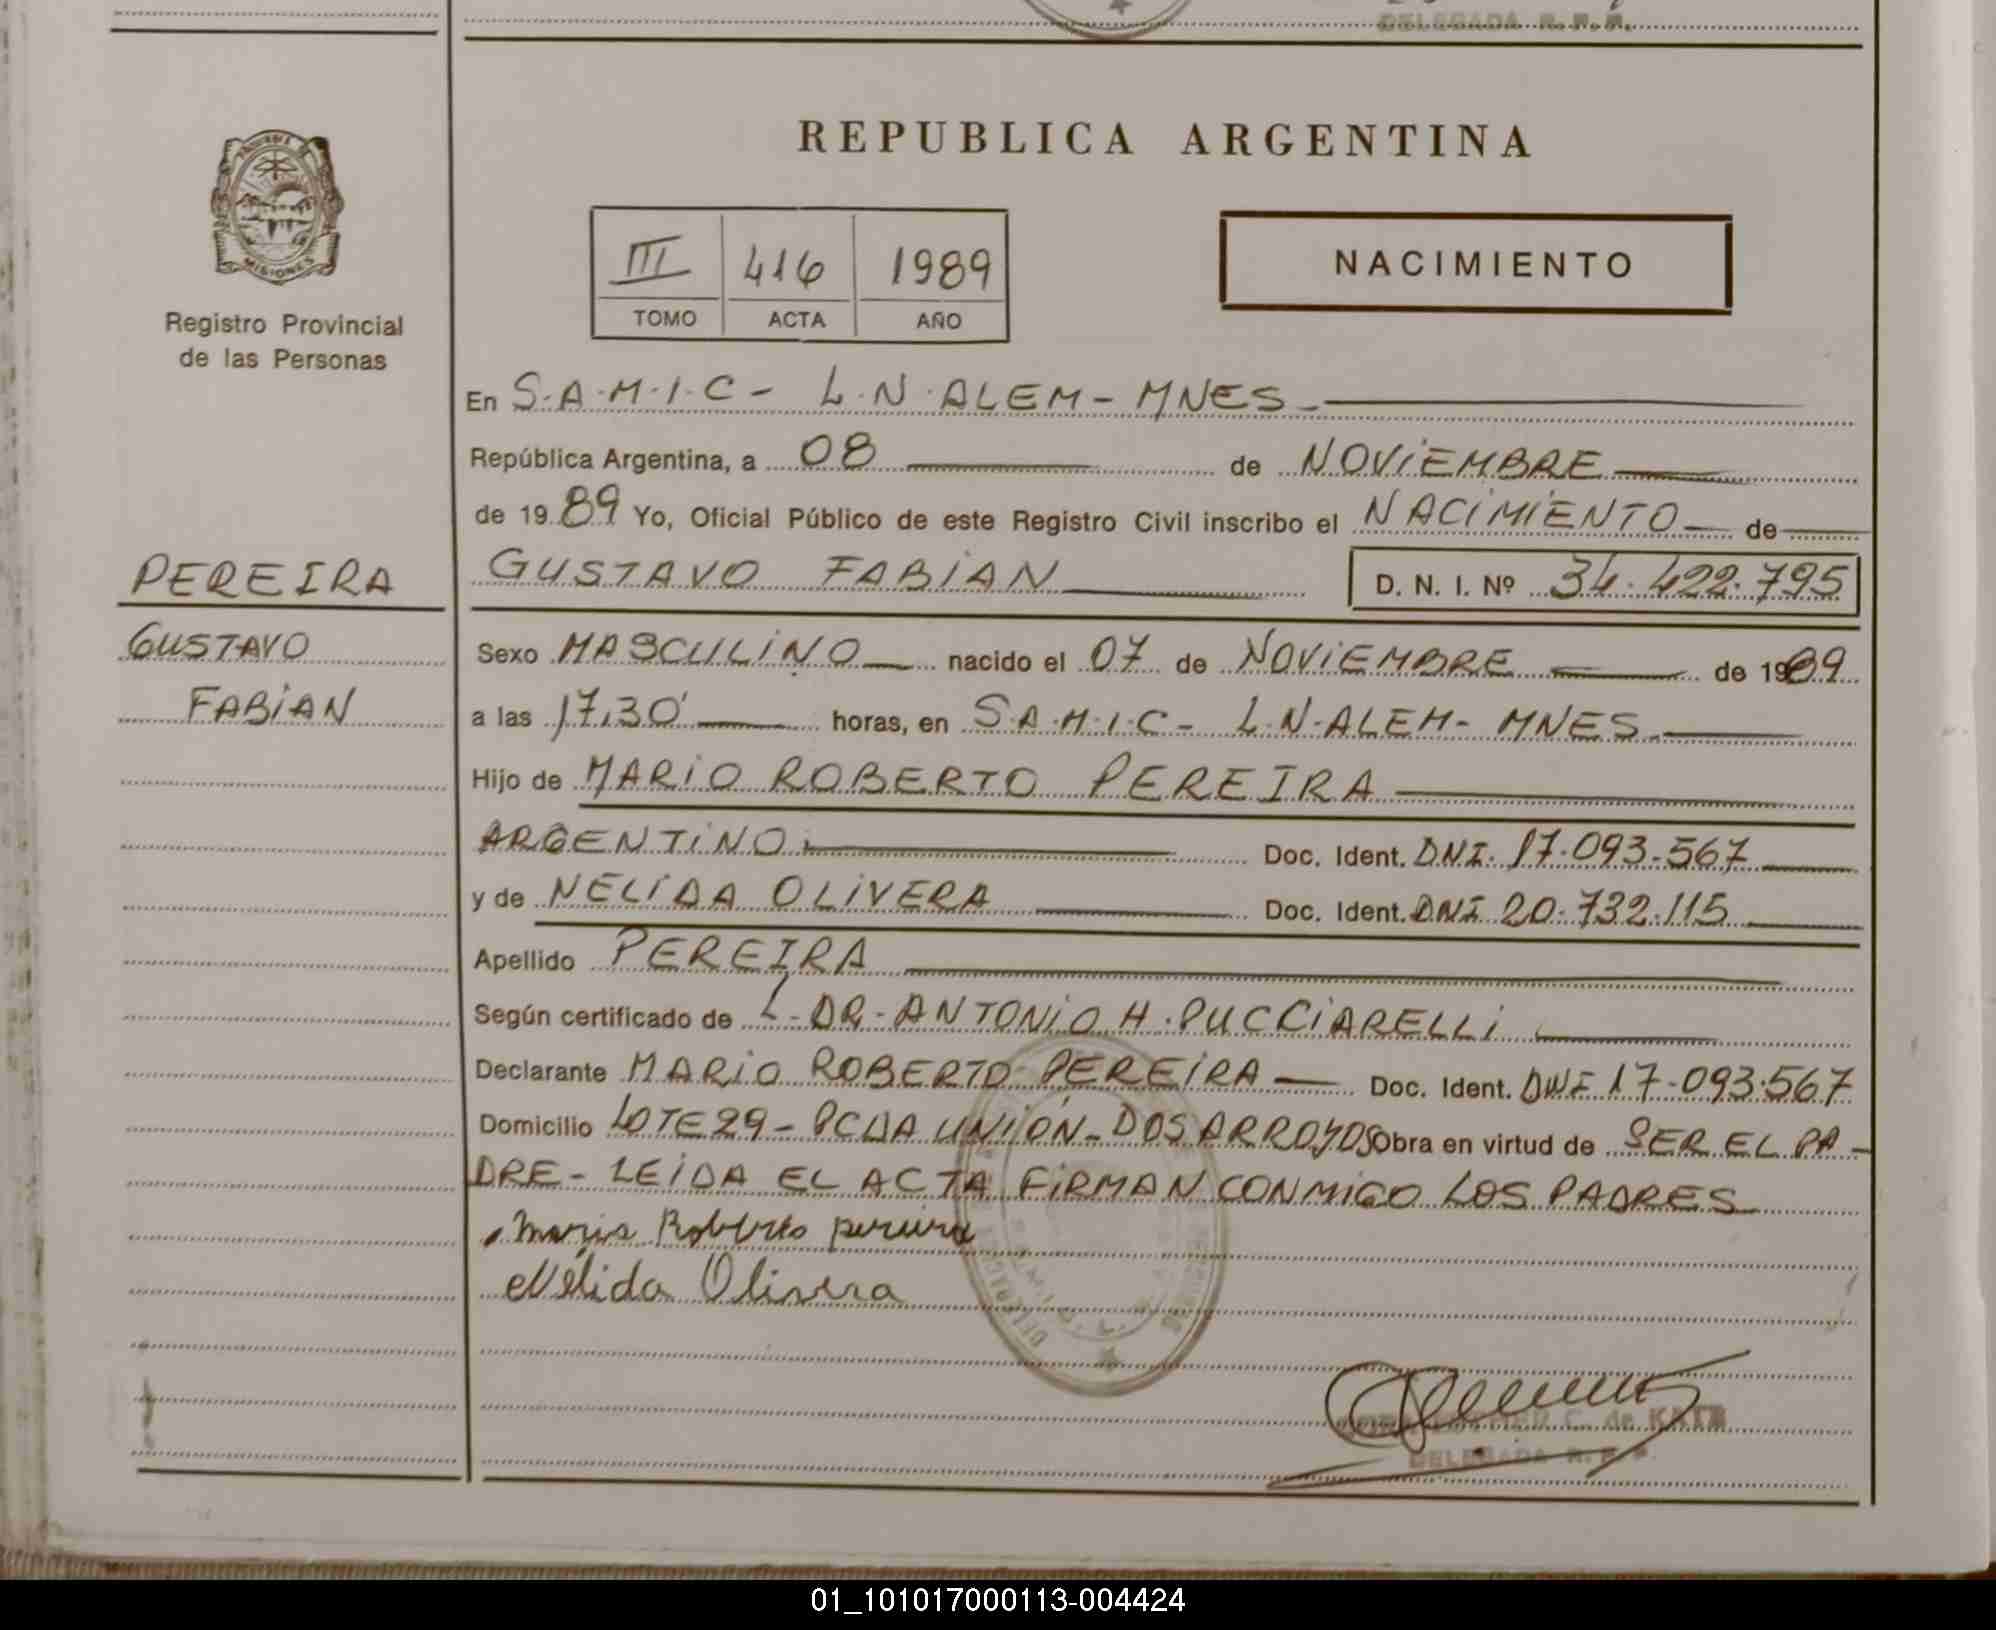 DELEGADA R.P.P.
REPUBLICA ARGENTINA
MISIONES
Registro Provincial
de las Personas
III 416 1989
TOMO ACTA AÑO
NACIMIENTO
En S.A.M.I.C - L.N.ALEM - MNES
República Argentina, a 08 de NOVIEMBRE
de 1989 Yo, Oficial Público de este Registro Civil inscribo el NACIMIENTO de
PEREIRA
GUSTAVO
FABIAN
GUSTAVO FABIAN D. N. I. Nº 34.422.795
Sexo MASCULINO nacido el 07 de NOVIEMBRE de 1989
a las 17,30' horas, en S.A.M.I.C - L.N.ALEM - MNES.
Hijo de MARIO ROBERTO PEREIRA
ARGENTINO. Doc. Ident. DNI. 17.093.567
y de NELIDA OLIVERA Doc. Ident. DNI 20.732.115
Apellido PEREIRA
Según certificado de L. DR. ANTONIO H. PUCCIARELLI
Declarante MARIO ROBERTO PEREIRA Doc. Ident. DNI 17.093.567
Domicilio LOTE 29 - PCDA UNIÓN - DOS ARROYOS Obra en virtud de SER EL PA-
DRE - LEIDA EL ACTA FIRMAN CONMIGO LOS PADRES
Mario Roberto pereira
Nélida Olivera
C. de KATZ
DELEGADA R.P.P.
01_101017000113-004424